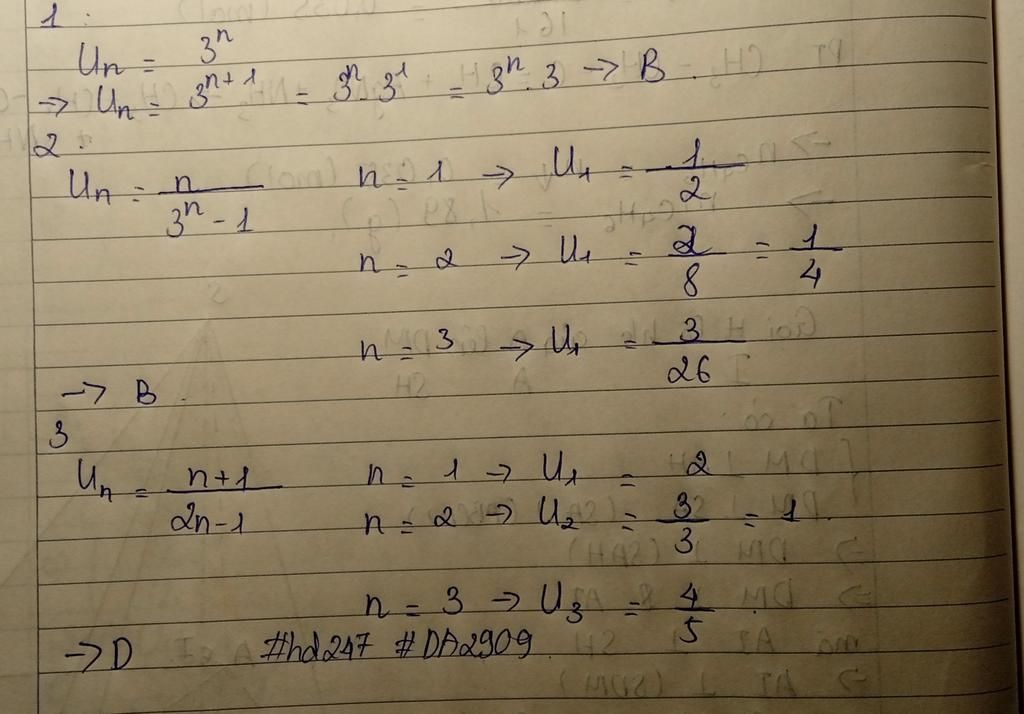 1 :
Un = 3^n
→ Un = 3^(n+1) = 3^n . 3^1 = 3^n . 3 → B .
2 .
Un = n/(3^n - 1) n = 1 → U1 = 1/2
n = 2 → U1 = 2/8 = 1/4
n = 3 → U1 = 3/26
→ B .
3
Un = (n+1)/(2n-1) n = 1 → U1 = 2
n = 2 → U2 = 3/3 = 1 .
n = 3 → U3 = 4/5 .
→ D #hd247 #DA2909